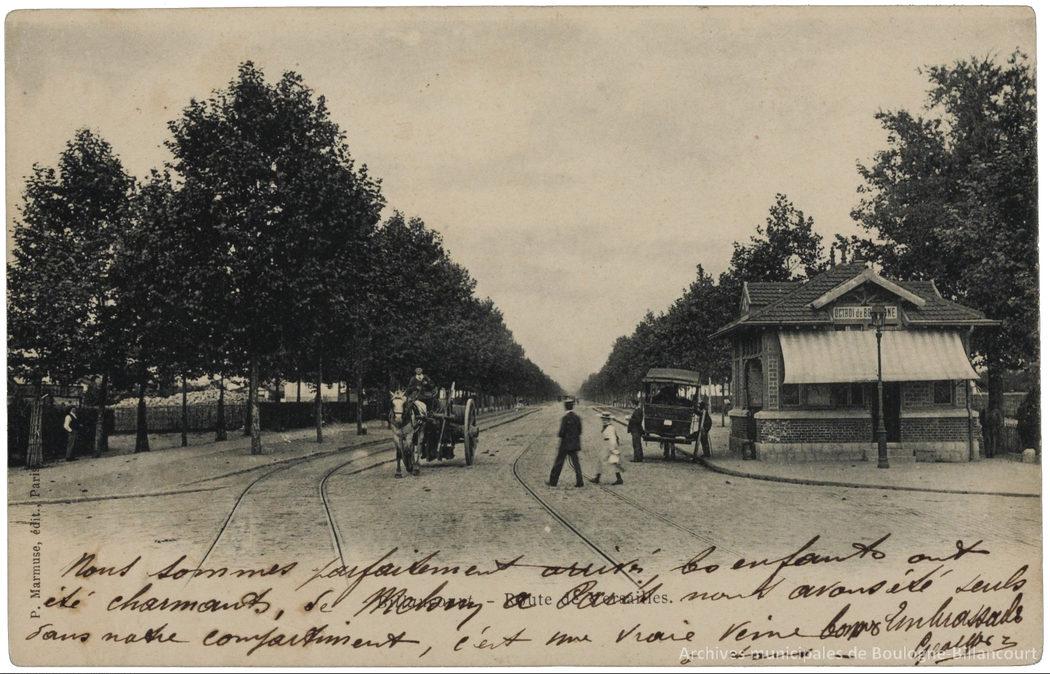 OCTROI de BOULOGNE
P. Marmuse, édit., Paris
Nous sommes parfaitement arrivés les enfants ont
été charmants, de à nous avons été seuls
Billancourt. – Route de Versailles.
dans notre compartiment, c'est une vraie veine bonnes Embrassades
Archives municipales de Boulogne-Billancourt